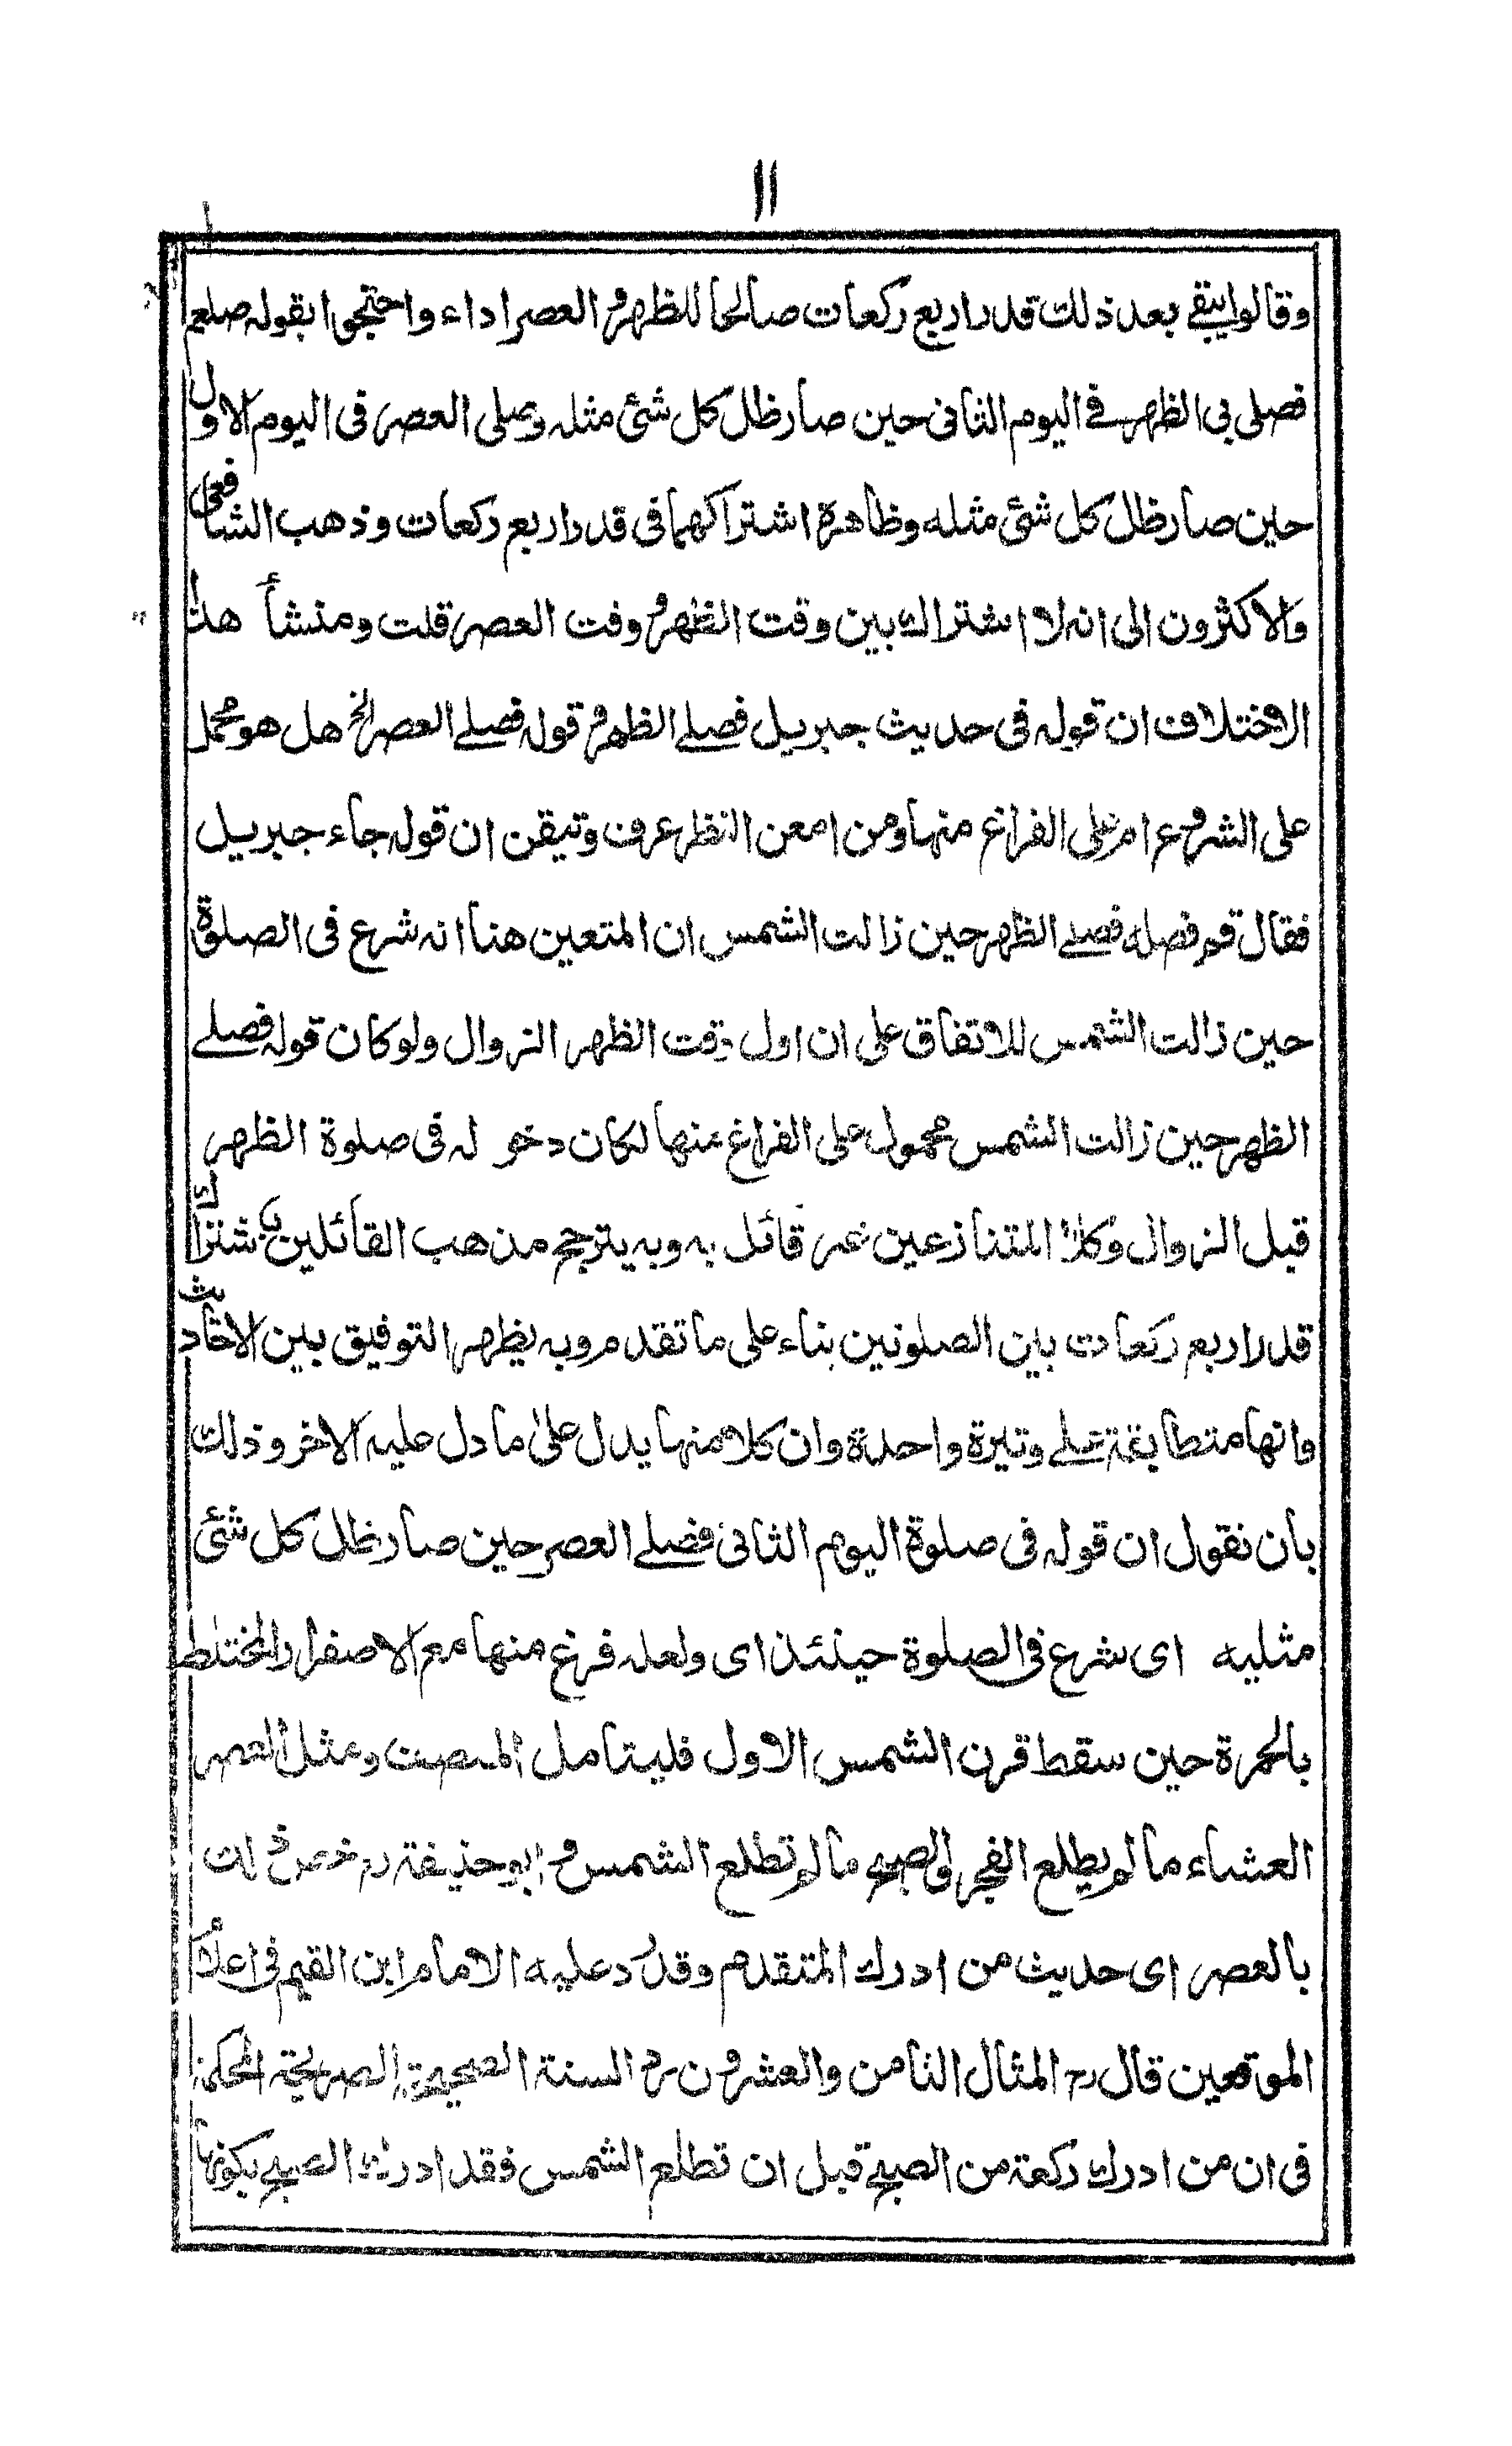 ١١
وقالوا يبقى بعد ذلك قدر اربع ركعات صالحا للظهر والعصر اداء واحتجوا بقوله صلعم
فصلى بي الظهر في اليوم الثاني حين صار ظل كل شئ مثله وصلى العصر في اليوم الاول
حين صار ظل كل شئ مثله وظاهرة اشتراكهما في قدر اربع ركعات وذهب الشافعي
والاكثرون الى انه لا اشتراك بين وقت الظهر ووقت العصر قلت ومنشأ هذا
الاختلاف ان قوله في حديث جبريل فصلى الظهر وقوله فصلى العصر الخ هل هو محمل
على الشروع ام على الفراغ منها ومن امعن النظر عرف وتيقن ان قوله جاء جبريل
فقال قم فصله فصلى الظهر حين زالت الشمس ان المتعين هنا انه شرع في الصلوة
حين زالت الشمس للاتفاق على ان اول وقت الظهر الزوال ولو كان قوله فصلى
الظهر حين زالت الشمس محمول على الفراغ منها لكان دخوله في صلوة الظهر
قبل الزوال وكلا المتنازعين غير قائل به وبه يترجح مذهب القائلين باشتراك
قدر اربع ركعات بين الصلوتين بناء على ما تقدم وبه يظهر التوفيق بين الاحاديث
وانها متطابقة على وتيرة واحدة وان كلا منها يدل على ما دل عليه الاخر وذلك
بان نقول ان قوله في صلوة اليوم الثاني فصلى العصر حين صار ظل كل شئ
مثليه اى شرع في الصلوة حينئذ اى ولعله فرغ منها مع الاصفرار المختلط
بالحمرة حين سقط قرن الشمس الاول فليتامل المنصف ومثل العصر
العشاء ما لم يطلع الفجر والصبح ما لم تطلع الشمس وابو حنيفة رح خص ذلك
بالعصر اى حديث من ادرك المتقدم وقد رد عليه الامام ابن القيم في اعلام
الموقعين قال رح المثال الثامن والعشرون رد السنة الصحيحة الصريحة المحكمة
في ان من ادرك ركعة من الصبح قبل ان تطلع الشمس فقد ادرك الصبح بكونها